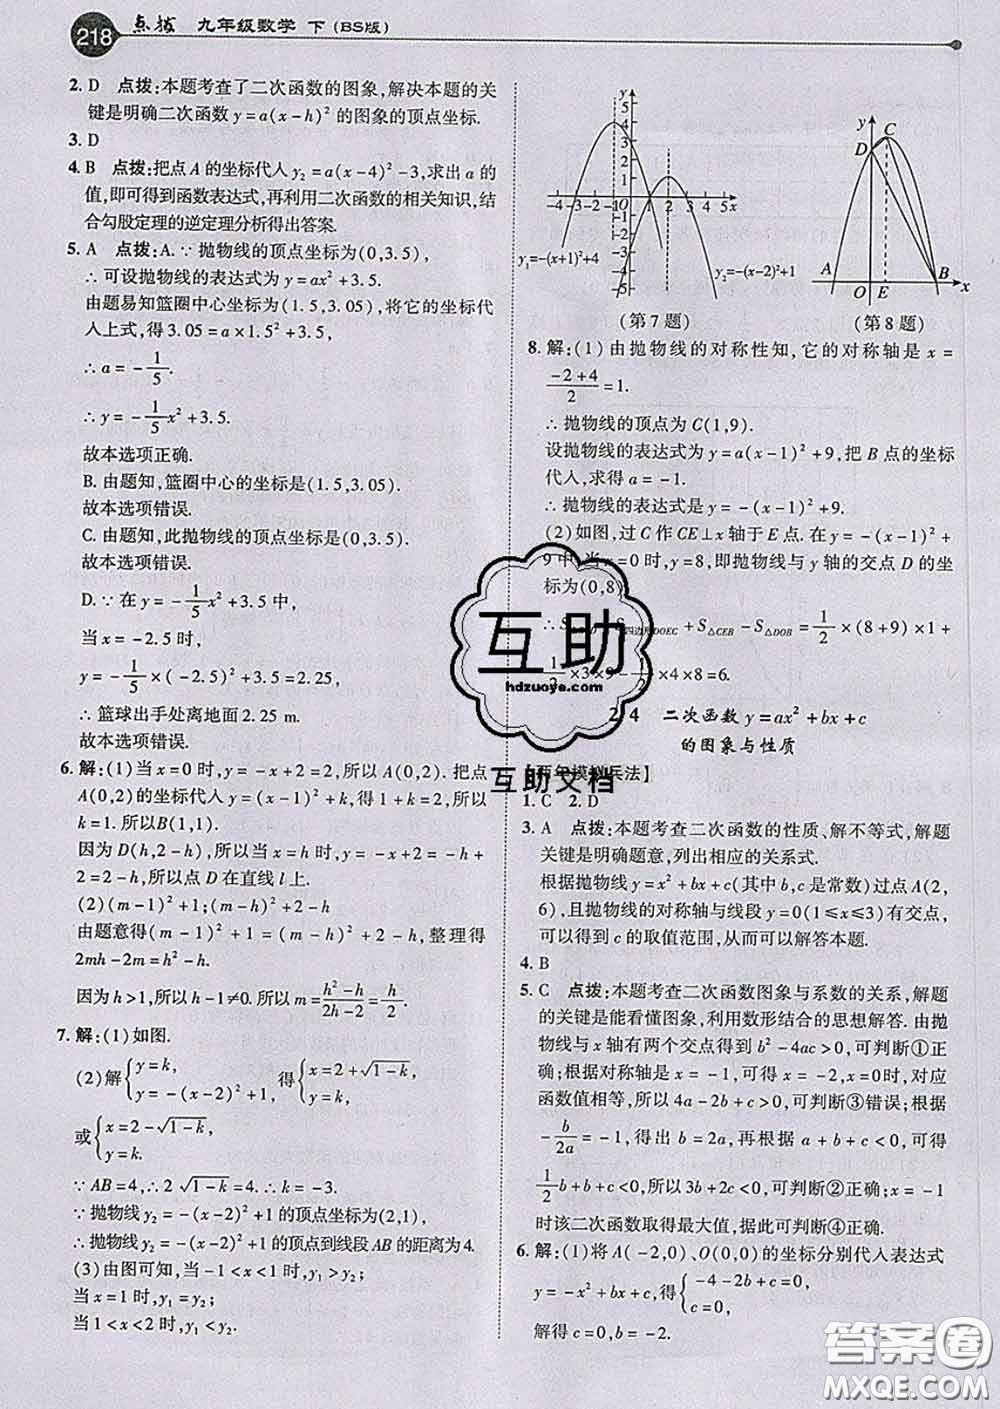 218 点拨 九年级数学 下(BS版)
2. D 点拨:本题考查了二次函数的图象,解决本题的关
键是明确二次函数 y=a(x-h)² 的图象的顶点坐标.
3. D
4. B 点拨:把点 A 的坐标代入 y₂=a(x-4)²-3,求出 a 的
值,即可得到函数表达式,再利用二次函数的相关知识,结
合勾股定理的逆定理分析得出答案.
5. A 点拨:A.∵抛物线的顶点坐标为(0,3.5),
∴可设抛物线的表达式为 y=ax²+3.5.
由题易知篮圈中心坐标为(1.5,3.05),将它的坐标代
入上式,得 3.05=a×1.5²+3.5,
∴a=-1/5.
∴y=-1/5x²+3.5.
故本选项正确.
B. 由题知,篮圈中心的坐标是(1.5,3.05).
故本选项错误.
C. 由题知,此抛物线的顶点坐标是(0,3.5).
故本选项错误.
D.∵在 y=-1/5x²+3.5中,
当 x=-2.5时,
y=-1/5×(-2.5)²+3.5=2.25,
∴篮球出手处离地面 2.25 m.
故本选项错误.
6. 解:(1)当 x=0时,y=-x+2=2,所以 A(0,2). 把点
A(0,2)的坐标代入 y=(x-1)²+k,得 1+k=2,所以
k=1. 所以B(1,1).
因为 D(h,2-h),所以当 x=h 时,y=-x+2=-h+
2=2-h,所以点 D 在直线 l 上.
(2)(m-1)²+1;(m-h)²+2-h
由题意得(m-1)²+1=(m-h)²+2-h,整理得
2mh-2m=h²-h.
因为 h>1,所以 h-1≠0. 所以 m=(h²-h)/(2h-2)=h/2.
7. 解:(1)如图.
(2)解{y=k, y=-(x-2)²+1, 得{x=2+√(1-k), y=k,
或{x=2-√(1-k), y=k.
∵AB=4,∴2√(1-k)=4. ∴k=-3.
∵抛物线 y₂=-(x-2)²+1 的顶点坐标为(2,1),
∴抛物线 y₂=-(x-2)²+1的顶点到线段 AB 的距离为4.
(3)由图可知,当 -1<x<1时,y₁>y₂;
当 x=1时,y₁=y₂;
当 1<x<2时,y₁<y₂.
y
5
4
3
2
1
-4 -3 -2 -1 O 1 2 3 4 5 x
-1
-2
-3
-4
-5
y₁=-(x+1)²+4
y₂=-(x-2)²+1
(第7题)
y
C
D
A
O E B x
(第8题)
8. 解:(1)由抛物线的对称性知,它的对称轴是 x=
(-2+4)/2=1.
∴抛物线的顶点为 C(1,9).
设抛物线的表达式为 y=a(x-1)²+9,把 B 点的坐标
代入,求得 a=-1.
∴抛物线的表达式是 y=-(x-1)²+9.
(2)如图,过 C 作 CE⊥x 轴于 E 点. 在 y=-(x-1)²+
9中,当 x=0时,y=8,即抛物线与 y 轴的交点 D 的坐
标为(0,8)
∴S 四边形DOEC+S△CEB-S△DOB=1/2×(8+9)×1+
1/2×3×9-1/2×4×8=6.
2.4 二次函数 y=ax²+bx+c
的图象与性质
【两年模拟兵法】
1. C 2. D
3. A 点拨:本题考查二次函数的性质、解不等式,解题
关键是明确题意,列出相应的关系式.
根据抛物线 y=x²+bx+c(其中 b,c 是常数)过点 A(2,
6),且抛物线的对称轴与线段 y=0(1≤x≤3)有交点,
可以得到 c 的取值范围,从而可以解答本题.
4. B
5. C 点拨:本题考查二次函数图象与系数的关系,解题
的关键是能看懂图象,利用数形结合的思想解答. 由抛
物线与 x 轴有两个交点得到 b²-4ac>0,可判断①正
确;根据对称轴是 x=-1,可得 x=-2,0时,对应
函数值相等,所以 4a-2b+c>0,可判断③错误;根据
-b/2a=-1,得出 b=2a,再根据 a+b+c<0,可得
1/2b+b+c<0,所以 3b+2c<0,可判断②正确;x=-1
时该二次函数取得最大值,据此可判断④正确.
6. 解:(1)将 A(-2,0)、O(0,0)的坐标分别代入表达式
y=-x²+bx+c,得{-4-2b+c=0, c=0,
解得 c=0,b=-2.
互助
hdzuoye.com
互助文档
答案圈
MXQE.COM